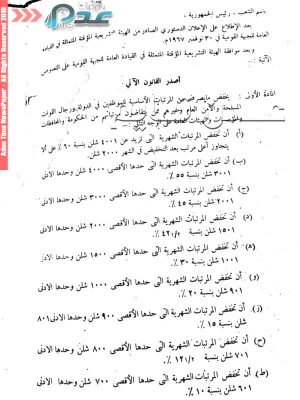 Aden Time NewsPaper - All Rights Reserved 2018
باسم الشعب . رئيس الجمهورية .
بعد الإطلاع على الإعلان الدستوري الصادر من الهيئة التشريعية المؤقتة المتمثلة في القيادة
العامة للجبهة القومية في ٣٠ نوفمبر ١٩٦٧م.
وبعد موافقة الهيئة التشريعية المؤقتة المتمثلة في القيادة العامة للجبهة القومية على النصوص
الآتية :-
أصدر القانون الآتي
المادة الأولى : يخفض ما يصرف من المرتبات الأساسية للموظفين في الدولة ورجال القوات
المسلحة والأمن العام وغيرهم ممن يتقاضون مرتباتهم من الحكومة والمحافظات
والمؤسسات والهيئات العامة على الوجه التالي :-
(أ) أن تخفض المرتبات الشهرية التي تزيد عن 4001 شلن بنسبة ٦٠٪ على ألا
يتجاوز أعلى مرتب بعد التخفيض في الشهر 2001 شلن.
(ب) أن تخفض المرتبات الشهرية التي حدها الأقصى 4000 شلن وحدها الادنى
3001 شلن بنسبة ٥٥٪.
(ج) أن تخفض المرتبات الشهرية التي حدها الأقصى 3000 شلن وحدها الادنى
2001 شلن بنسبة
(د) أن تخفض المرتبات الشهرية التي حدها الأقصى 2000 شلن وحدها الادنى
1501 شلن بنسبة
(ه) أن تخفض المرتبات الشهرية التي حدها الأقصى 1500 شلن وحدها الادنى
1001 شلن بنسبة ٣٠٪.
(و) أن تخفض المرتبات الشهرية التي حدها الأقصى 1000 شلن وحدها الادنى
901 شلن بنسبة ٢٠٪.
(ز) أن تخفض المرتبات الشهرية التي حدها الأقصى 900 شلن وحدها الادنى 801
شلن بنسبة ١٥٪.
(ح) أن تخفض المرتبات الشهرية التي حدها الأقصى 800 شلن وحدها الادنى
701 شلن بنسبة
(ط) أن تخفض المرتبات الشهرية التي حدها الأقصى 700 شلن وحدها الادنى
601 شلن بنسبة ١٠٪.